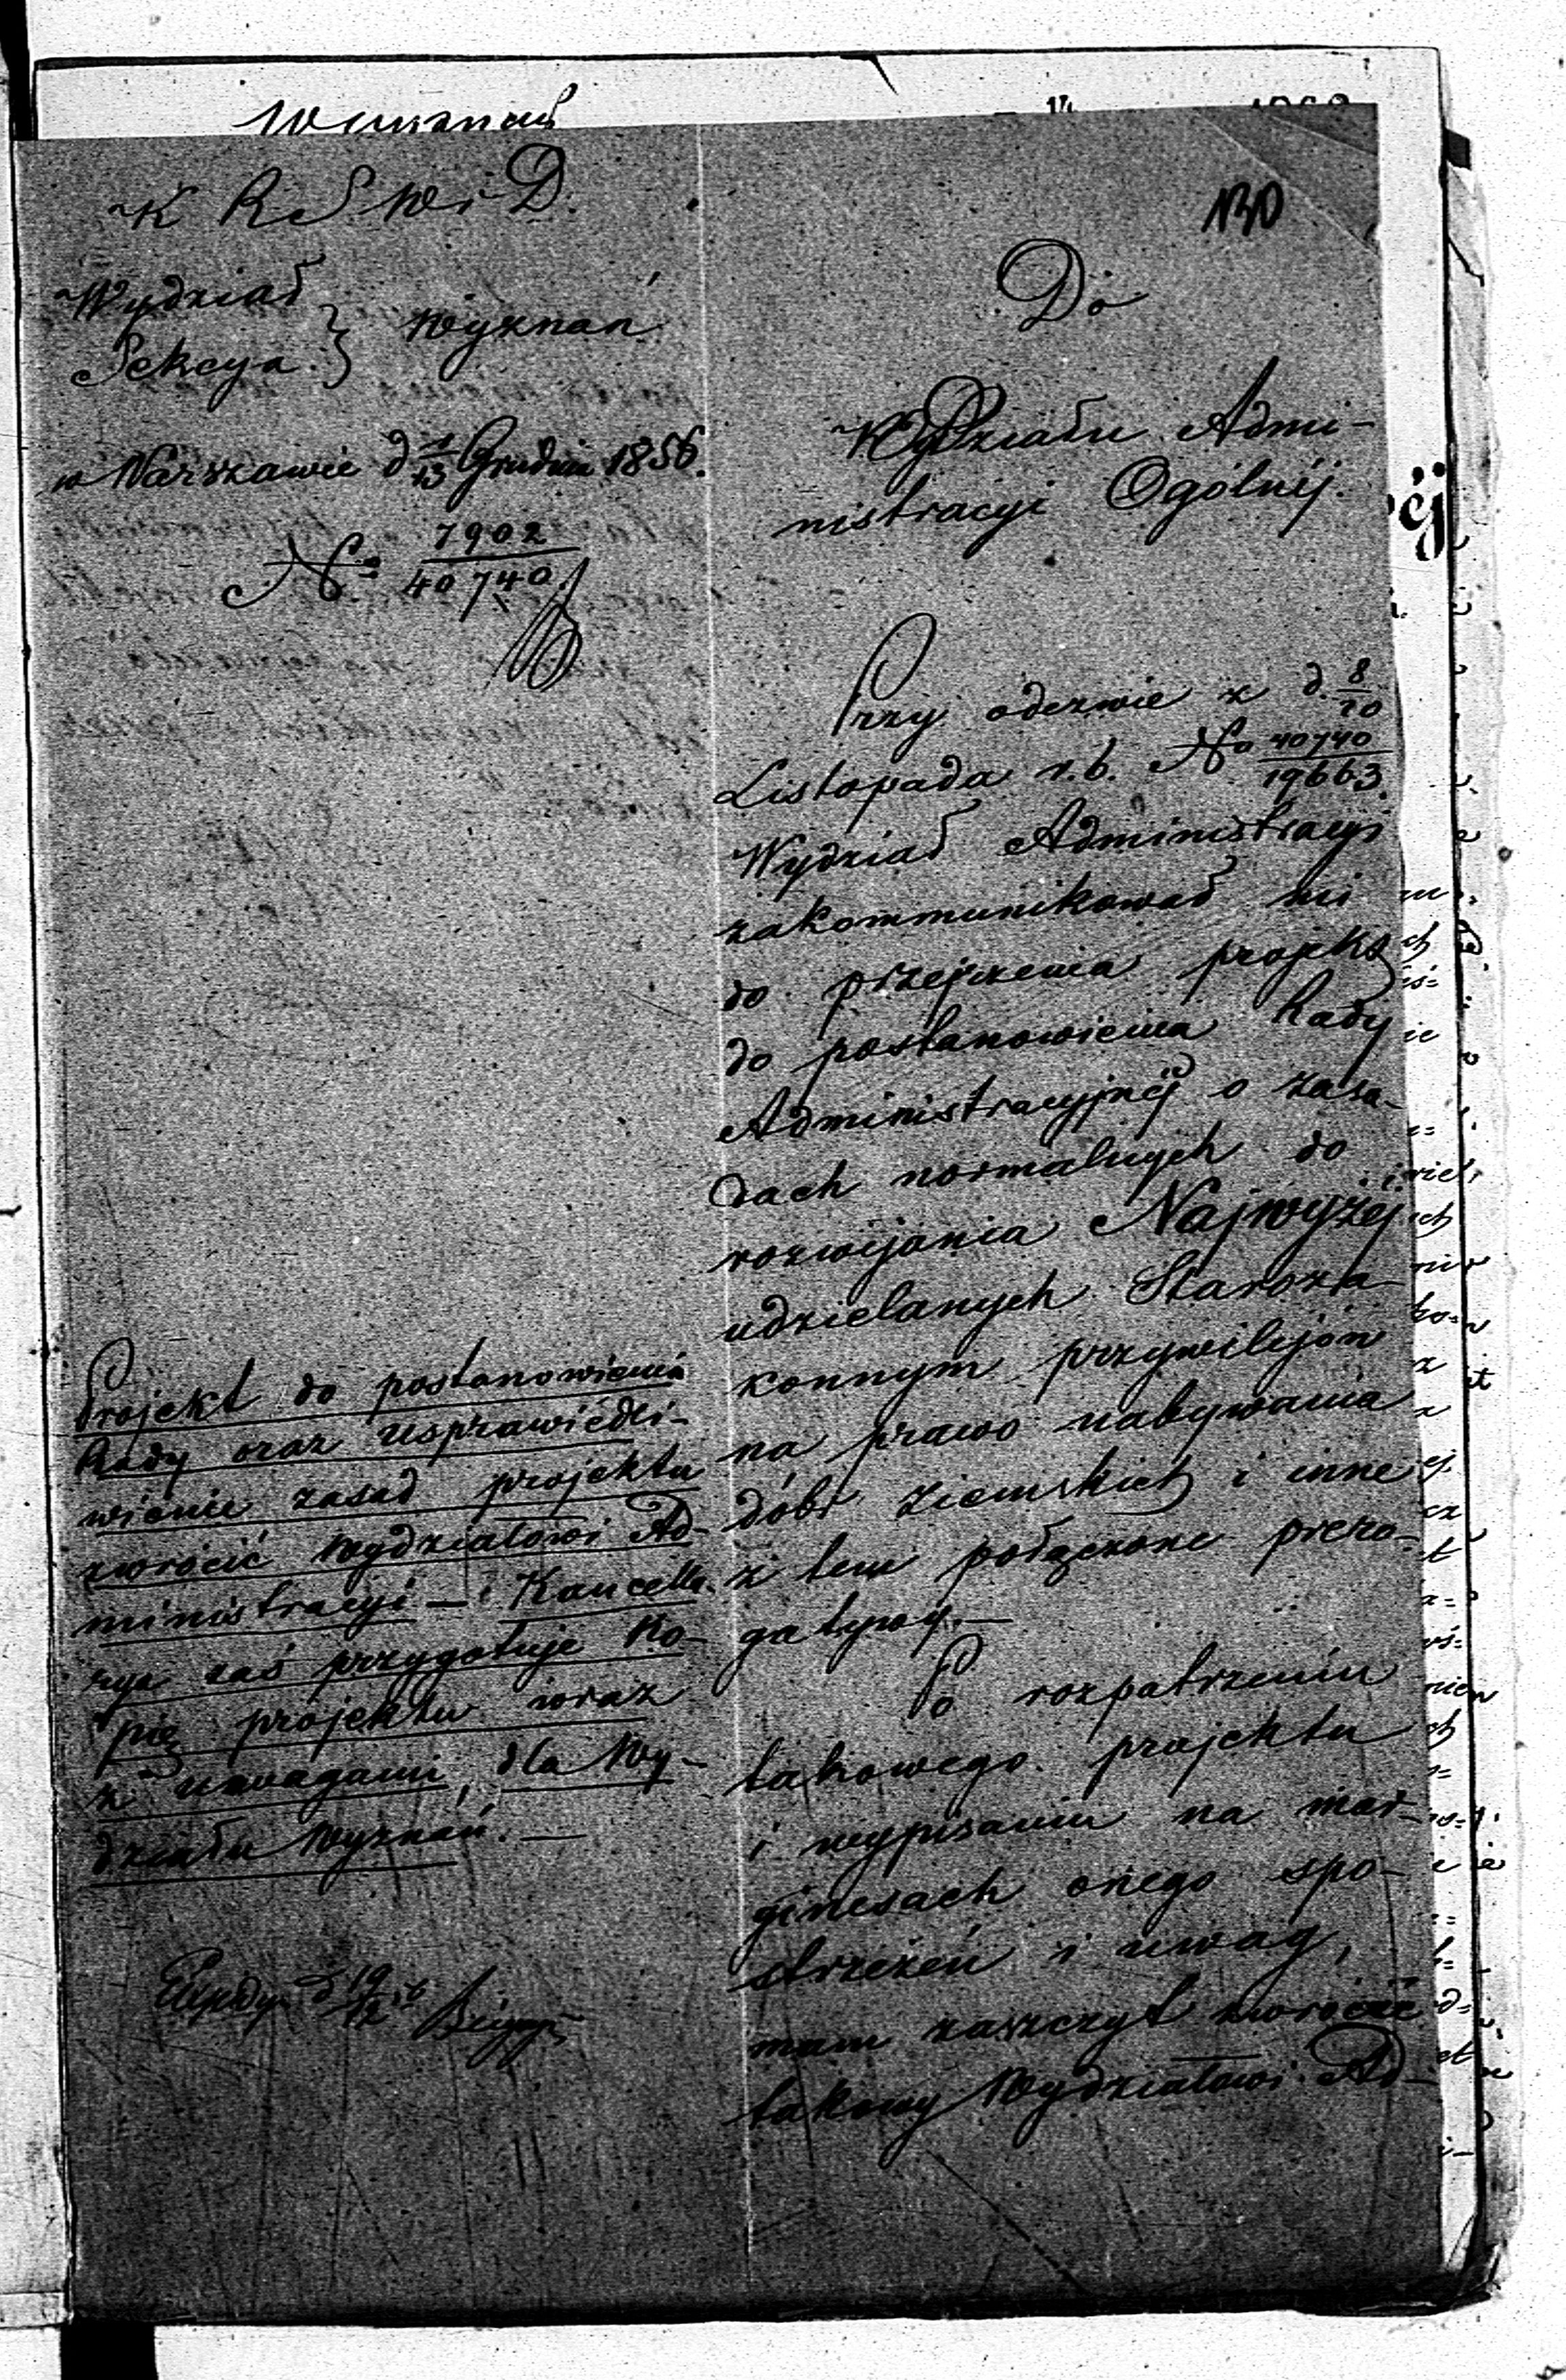 130
K R S W i D.
Wydział
Sekcya } Wyznań
w Warszawie d 1/13 Grudnia 1856.
No 7902/40740
Do
Wydziału Admi-
nistracyi Ogólnéj.
Przy odezwie z d. 8/20
Listopada r.b. No 40740/19663.
Wydział Administracyi
zakommunikował mi
do przejrzenia projekt
do postanowienia Rady
Administracyjnéj o zasa-
dach normalnych do
rozwijania Najwyżéj
udzielanych Staroza-
konnym przywilejów
na prawo nabywania
dóbr ziemskich i inne
z tem połączone prero-
gatywy.—
Po rozpatrzeniu
takowego projektu
i wypisaniu na mar-
ginesach onego spo-
strzeżeń i uwag,
mam zaszczyt zwrócić
takowy Wydziałowi Ad-
Projekt do postanowienia
Rady oraz usprawiedli-
wienie zasad projektu
zwrócić Wydziałowi Ad-
ministracyi — i Kancella-
rya zaś przygotuje ko-
pię projektu wraz
z uwagami, dla Wy-
działu Wyznań.—